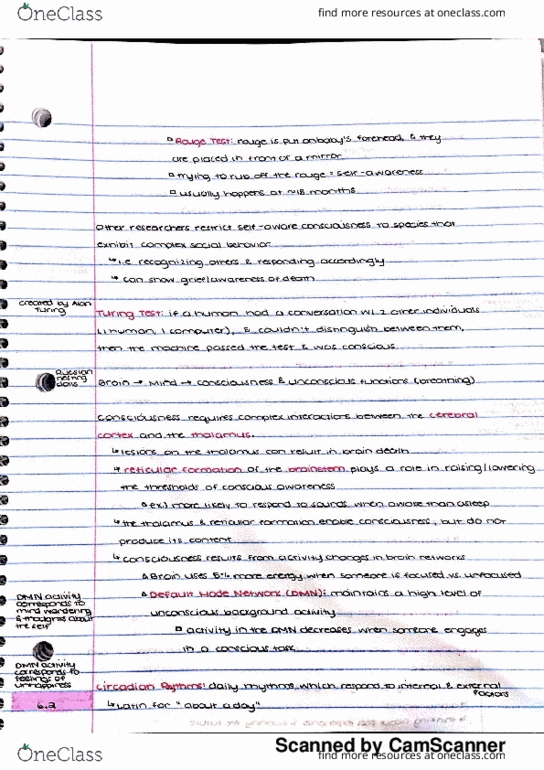 OneClass
find more resources at oneclass.com
▫ Rouge Test: rouge is put on baby's forehead, & they
are placed in front of a mirror
▫ trying to rub off the rouge = self-awareness
▫ usually happens at ~18 months
Other researchers restrict self-aware consciousness to species that
exhibit complex social behavior
↳ i.e recognizing others & responding accordingly
↳ can show grief/awareness of death
created by Alan
Turing
Turing Test: if a human had a conversation w/ 2 other individuals
(1 human, 1 computer), & couldn't distinguish between them,
then the machine passed the test & was conscious
Russian
nesting
dolls
Brain → Mind → consciousness & unconscious functions (breathing)
consciousness requires complex interactions between the cerebral
cortex and the thalamus.
↳ lesions on the thalamus can result in brain death
↳ reticular formation of the brainstem plays a role in raising/lowering
the thresholds of conscious awareness
▫ ex) more likely to respond to sounds when awake than asleep
↳ the thalamus & reticular formation enable consciousness, but do not
produce its content
↳ consciousness results from activity changes in brain networks
▫ Brain uses 5% more energy when someone is focused vs. unfocused
▫ Default Mode Network (DMN): maintains a high level of
unconscious background activity
▫ activity in the DMN decreases when someone engages
in a conscious task
DMN activity
corresponds to
mind wandering
& thoughts about
the self
DMN activity
corresponds to
feelings of
unhappiness
Circadian Rythms: daily rhythms, which respond to internal & external
factors
6.2
↳ Latin for "about a day"
Scanned by CamScanner
OneClass
find more resources at oneclass.com